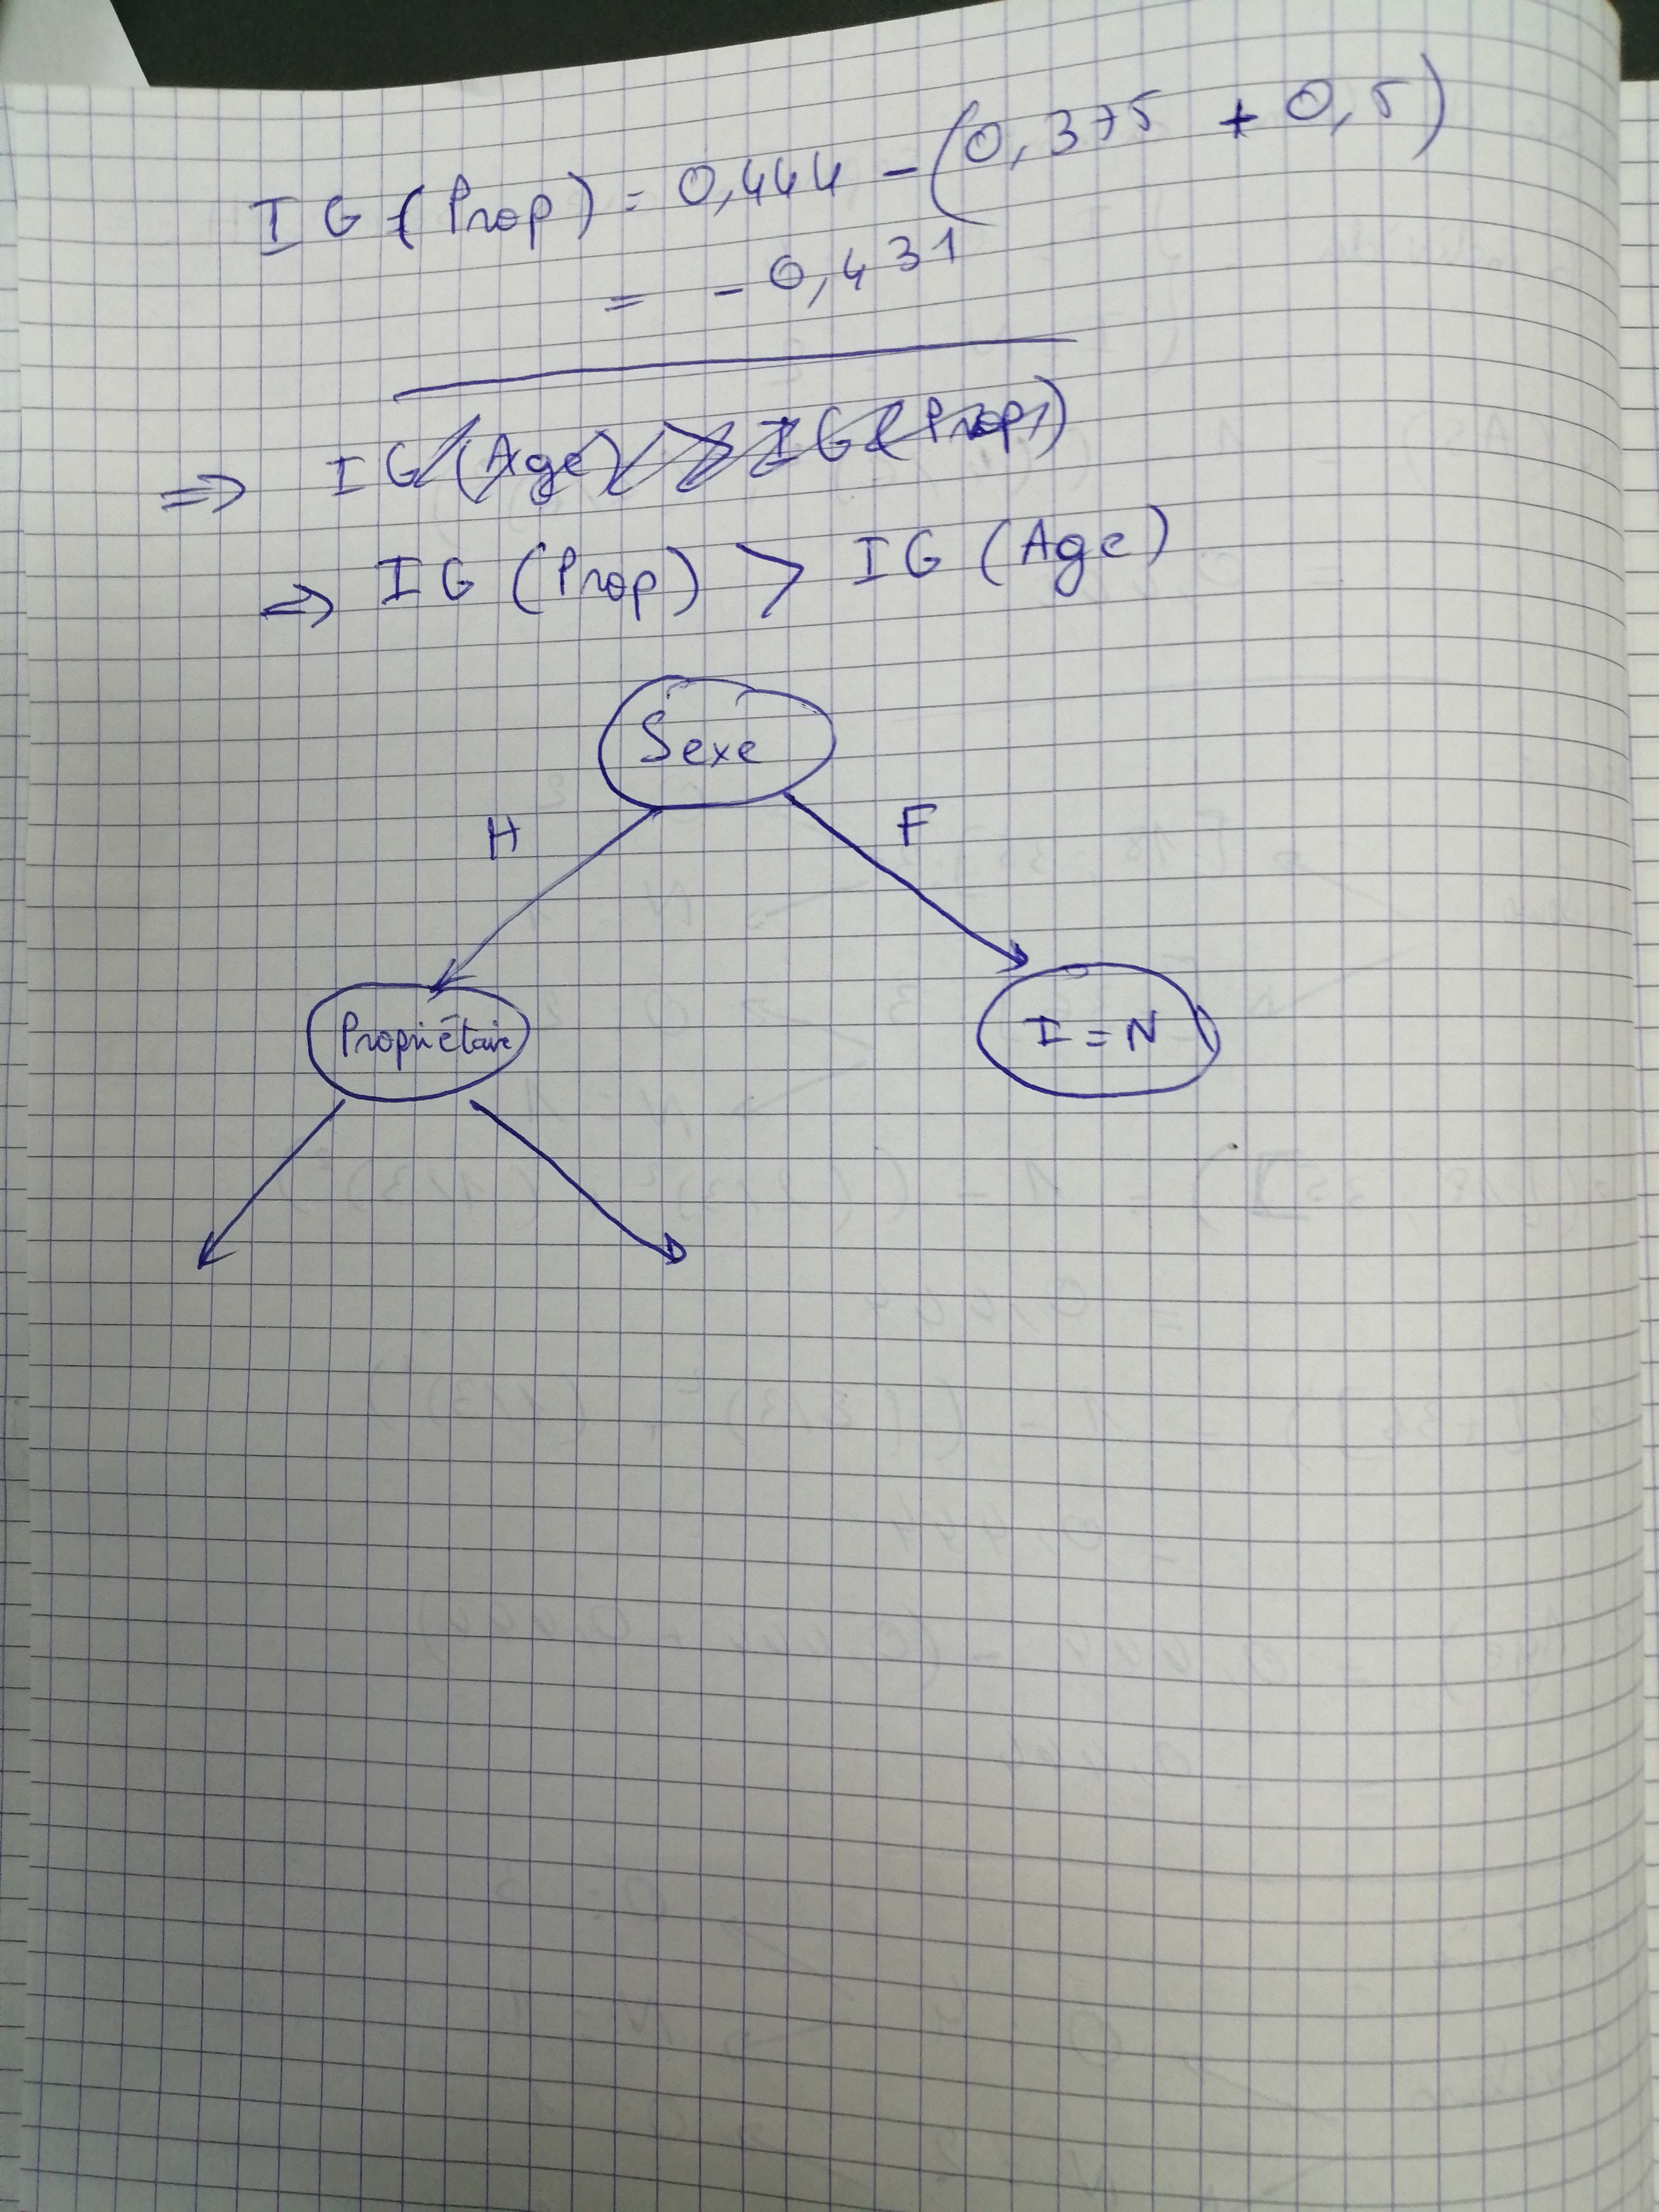 IG (Prop) = 0,444 - (0,375 + 0,5)
= - 0,431
⇒ IG (Age) > IG (Prop)
⇒ IG (Prop) > IG (Age)
Sexe
H F
Propriétaire I = N